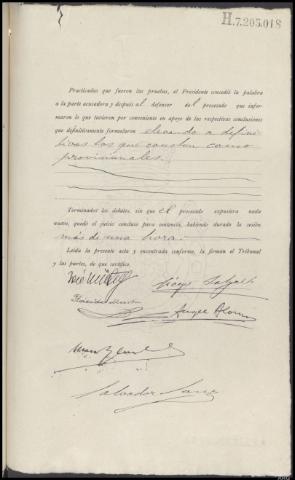 H.7.205.018
Practicadas que fueron las pruebas, el Presidente concedió la palabra
a la parte acusadora y después al defensor del procesado que infor-
maron lo que tuvieron por conveniente en apoyo de las respectivas conclusiones
que definitivamente formularon elevando a defini-
tivas las que constan como
provisionales.
Terminados los debates, sin que el procesado expusiera nada
nuevo, quedó el juicio concluso para sentencia, habiendo durado la sesión
más de una hora.
Leída la presente acta y encontrada conforme, la firman el Tribunal
y las partes, de que certifico.
José
Diego
Angel Alonso
Salvador